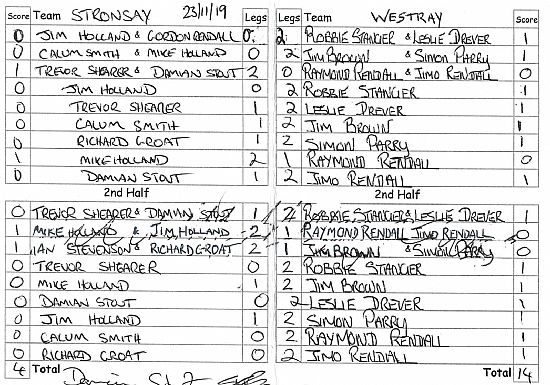 Score Team STRONSAY 23/11/19 Legs Legs Team WESTRAY Score
0 JIM HOLLAND & GORDON RENDALL 0 2 ROBBIE STANGER & LESLIE DREVER 1
0 CALUM SMITH & MIKE HOLLAND 0 2 JIM BROWN & SIMON PARRY 1
1 TREVOR SHEARER & DAMIAN STOUT 2 0 RAYMOND RENDALL & JIMO RENDALL 0
0 JIM HOLLAND 0 2 ROBBIE STANGER 1
0 TREVOR SHEARER 1 2 LESLIE DREVER 1
0 CALUM SMITH 1 2 JIM BROWN 1
0 RICHARD GROAT 1 2 SIMON PARRY 1
1 MIKE HOLLAND 2 1 RAYMOND RENDALL 0
0 DAMIAN STOUT 1 2 JIMO RENDALL 1
2nd Half 2nd Half
0 TREVOR SHEARER & DAMIAN STOUT 1 2 ROBBIE STANGER & LESLIE DREVER 1
1 MIKE HOLLAND & JIM HOLLAND 2 1 RAYMOND RENDALL JIMO RENDALL 0
1 IAN STEVENSON & RICHARD GROAT 2 1 JIM BROWN & SIMON PARRY 0
0 TREVOR SHEARER 0 2 ROBBIE STANGER 1
0 MIKE HOLLAND 1 2 JIM BROWN 1
0 DAMIAN STOUT 0 2 LESLIE DREVER 1
0 JIM HOLLAND 1 2 SIMON PARRY 1
0 CALUM SMITH 0 2 RAYMOND RENDALL 1
0 RICHARD GROAT 0 2 JIMO RENDALL 1
4 Total Total 14